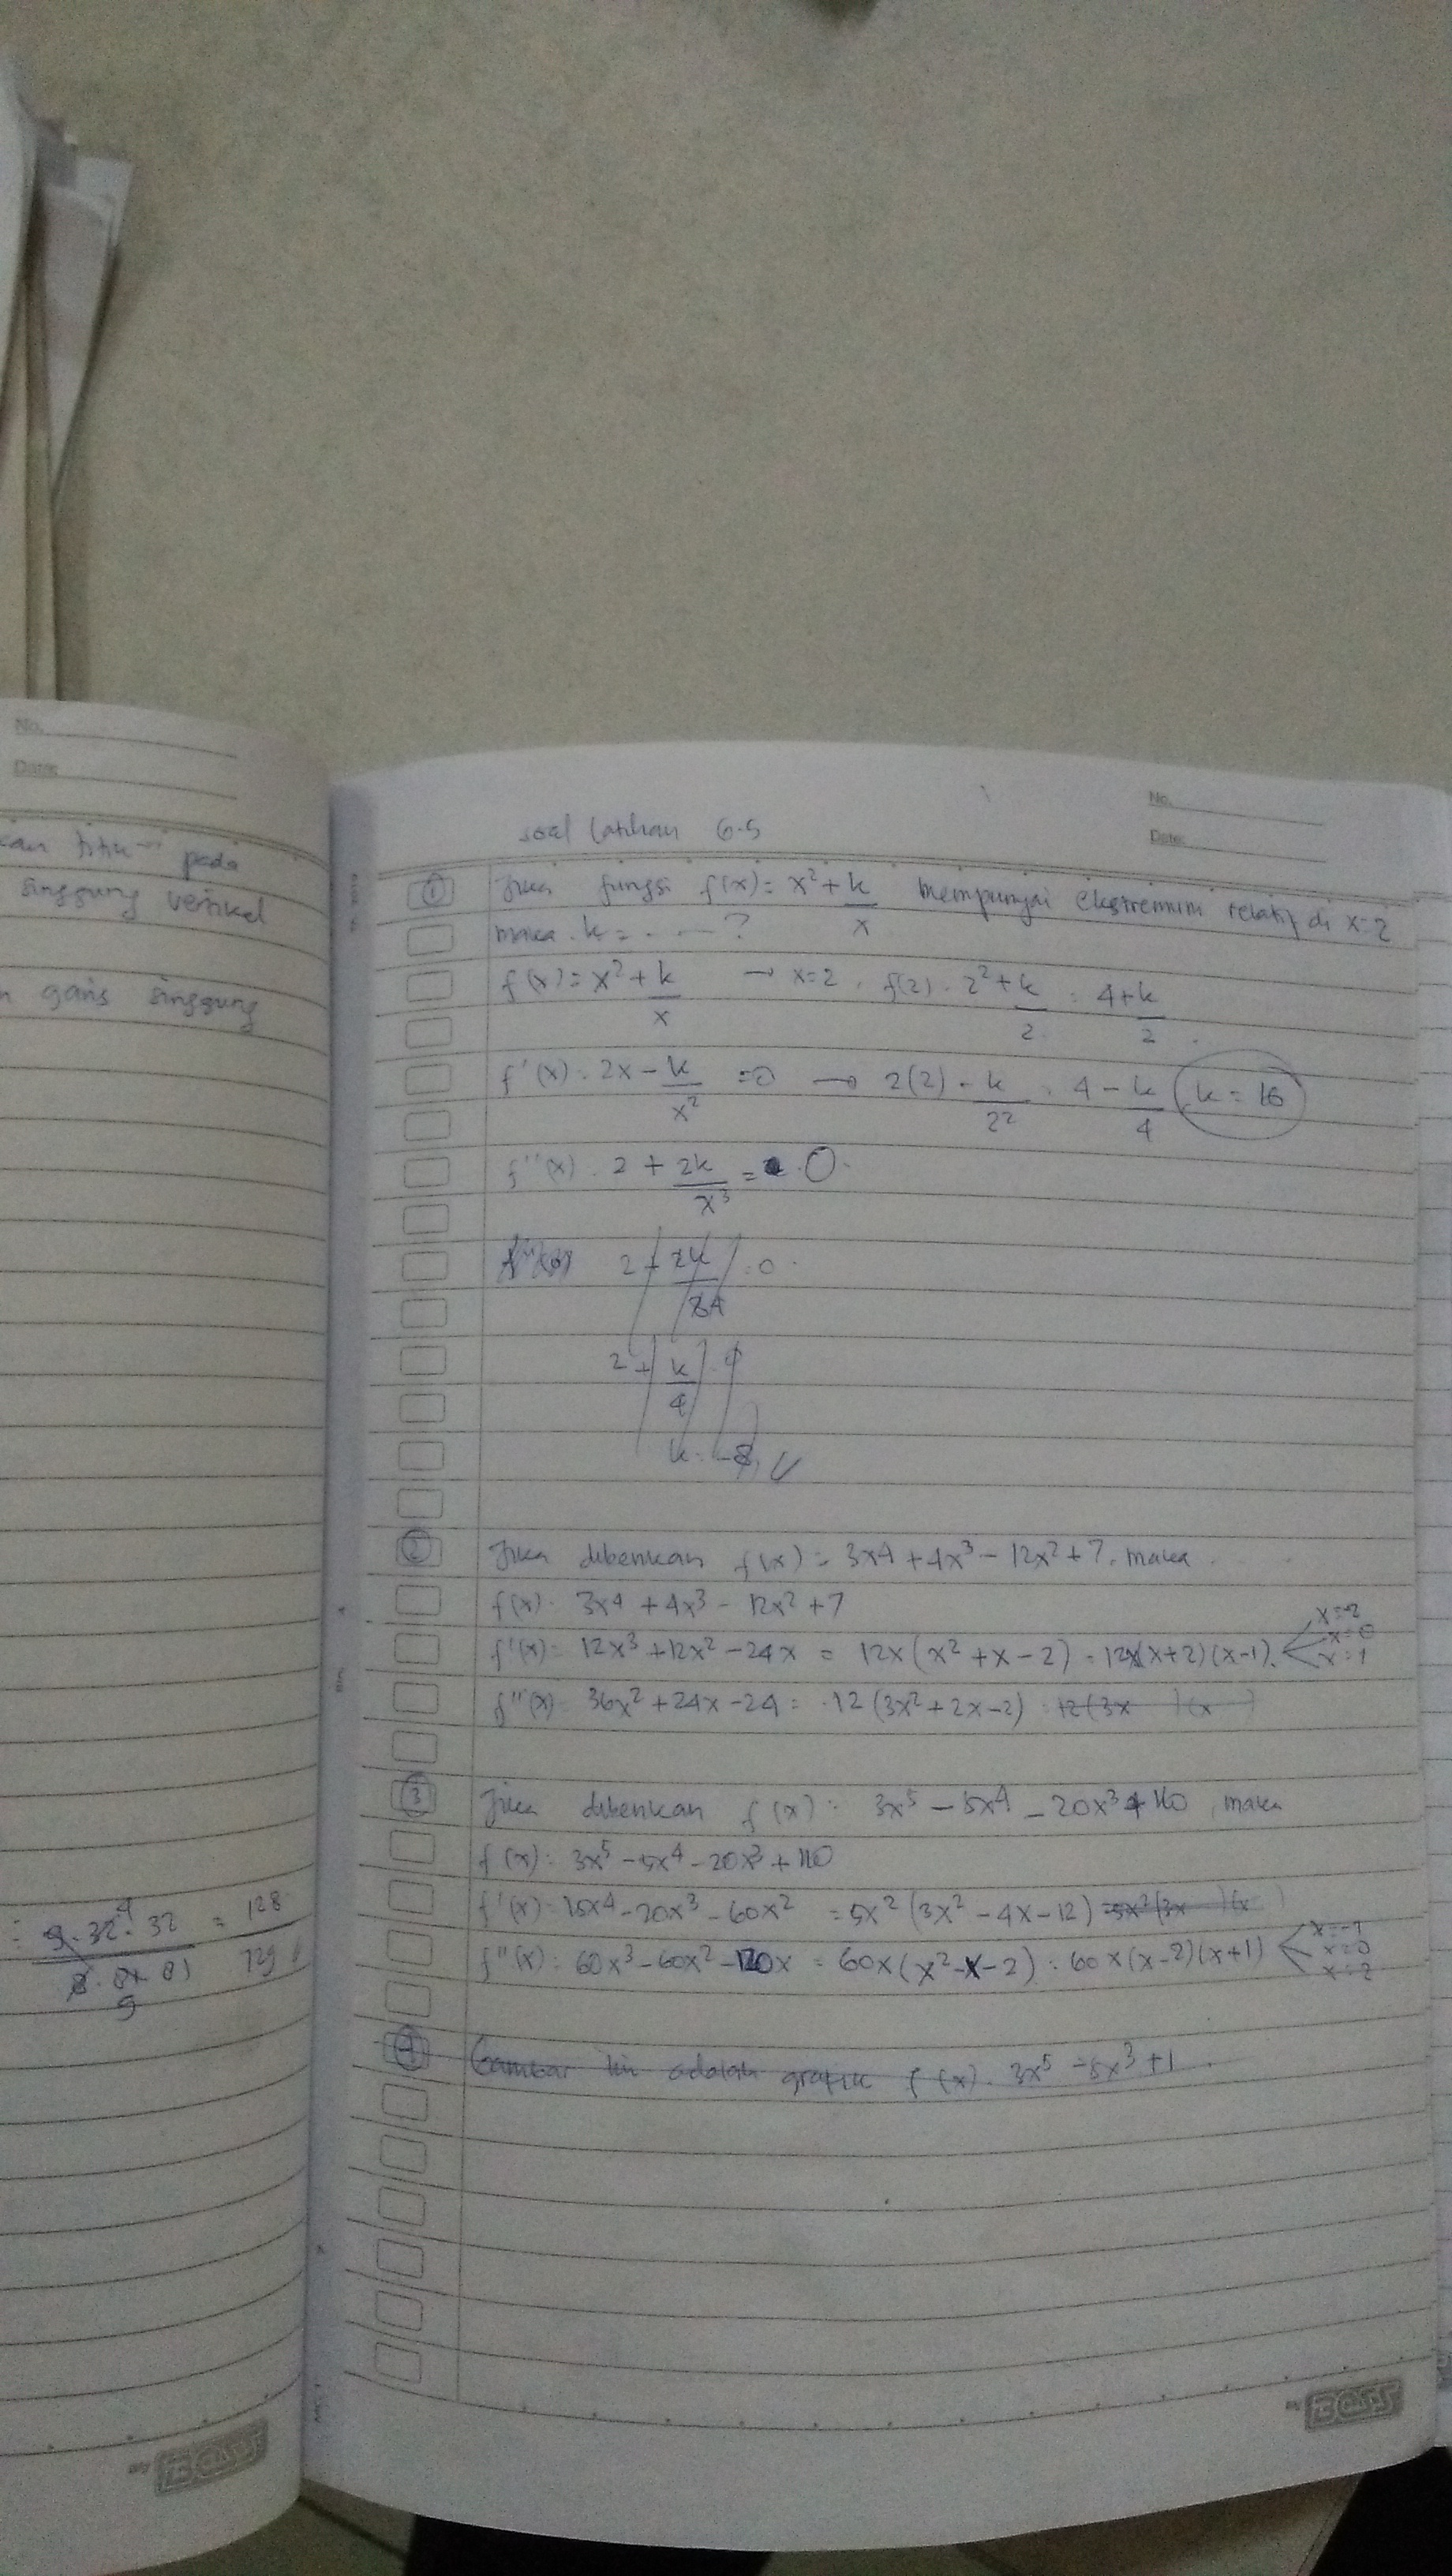 No.
Date:
pada
singgung vertikel
garis singgung
= 9. 32. 32 = 128
4
8. 81 81 729
9
By Boss
No.
Date:
soal Latihan 6.5
① Jika fungsi f(x) = x² + k/x mempunyai ekstremum relatif di x=2
maka k = . . . . ?
f(x) = x² + k/x → x=2, f(2) . 2² + k/2 = 4 + k/2
f'(x) . 2x - k/x² = 0 → 2(2) - k/2² . 4 - k/4 k = 16
f''(x) . 2 + 2k/x³ = 0.
2 + 2k/84 = 0
2 + k/4 .
k = -8
② Jika diberikan f(x) = 3x4 + 4x³ - 12x² + 7, maka
f(x) . 3x4 + 4x3 - 12x2 + 7
f'(x) = 12x³ + 12x² - 24x = 12x (x² + x - 2) = 12x(x+2) (x-1) x=-2
x=0
x=1
f''(x) = 36x² + 24x - 24 = 12 (3x² + 2x - 2) 12 (3x )(x )
③ Jika diberikan f(x) = 3x5 - 5x4 - 20x3 + 110, maka
f(x) = 3x5 - 5x4 - 20x3 + 110
f'(x) = 15x4 - 20x3 - 60x2 = 5x² (3x² - 4x - 12) = 5x² (3x )(x )
f''(x) = 60x3 - 60x2 - 120x = 60x (x² - x - 2) = 60x (x-2) (x+1) x=-1
x=0
x=2
④ Gambar ini adalah grafik f(x) . 3x5 - 5x3 + 1
By Boss